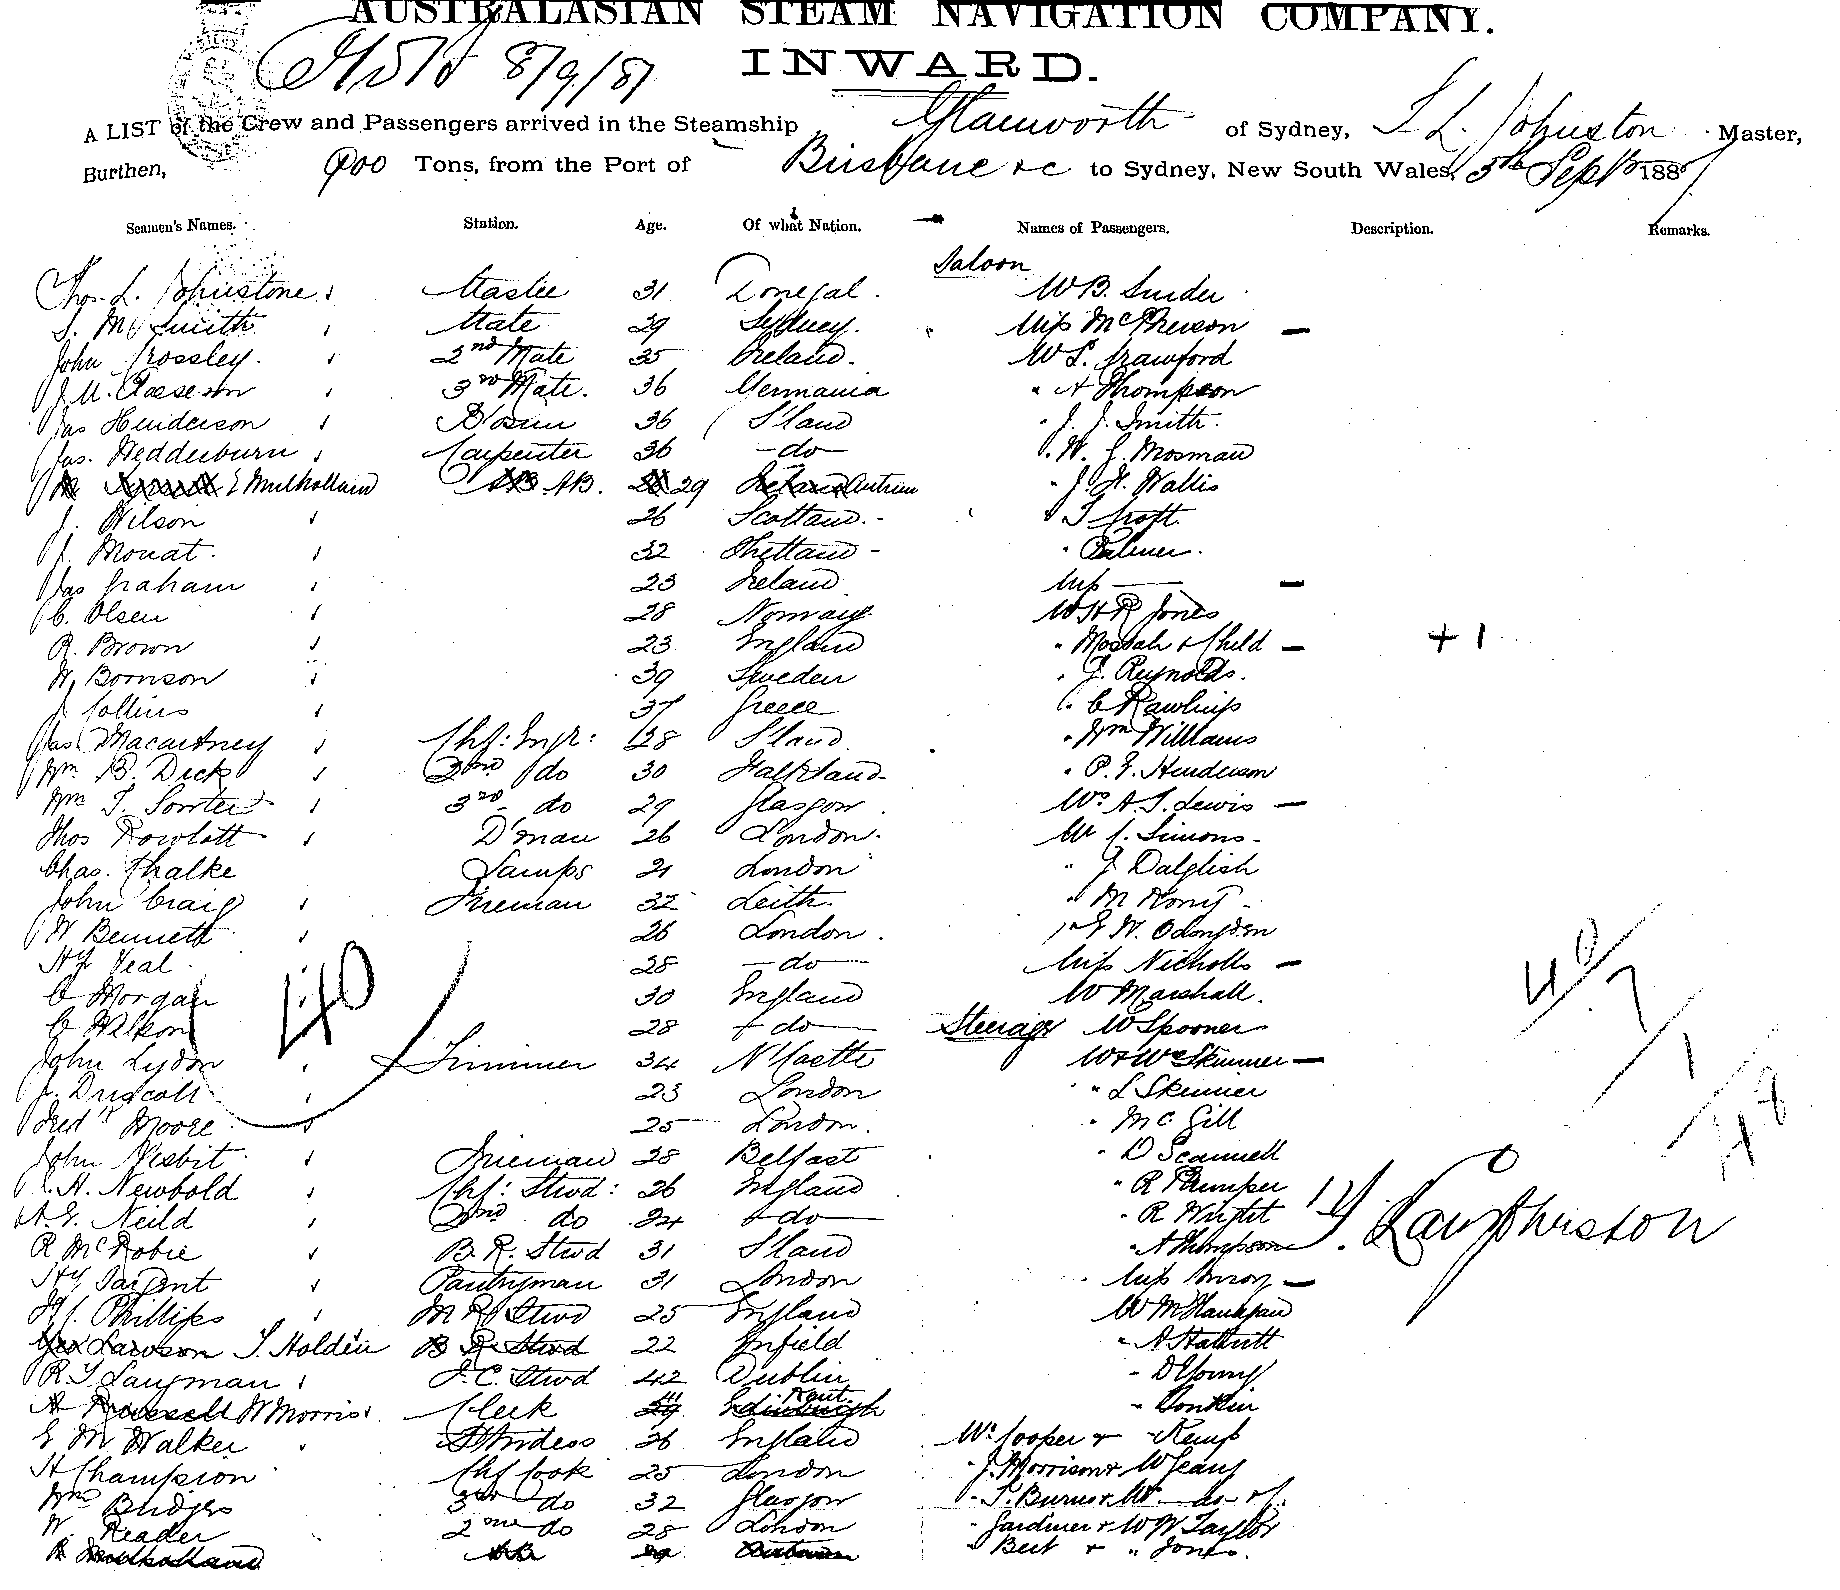 AUSTRALASIAN STEAM NAVIGATION COMPANY.
8/9/87
INWARD.
A LIST of the Crew and Passengers arrived in the Steamship Glamworth of Sydney, T L. Johnston Master,
Burthen, 900 Tons, from the Port of Brisbane &c to Sydney, New South Wales, 5th Sept 1887
Seamen's Names. Station. Age. Of what Nation. Names of Passengers. Description. Remarks.
Saloon
Thos. L. Johnstone Master 31 Donegal. W B. Snider
S. Mc Smith Mate 29 Sydney. Miss McPherson —
John Crossley. 2nd Mate 35 Ireland. W S. Crawford
J. M. 3rd Mate. 36 Germania " A Thompson
Jas Henderson 36 S'land " J. J. Smith.
Jas. Hedderburn Carpenter 36 — do — " W. G. Mosman
E Mulholland AB. 29 Antrim " J. H. Wallis
J. Wilson 26 Scotland. " T Croft
J. Mouat. 32 Shetland - " Palmer.
Jas Graham 23 Ireland Miss — —
C. Olsen 28 Norway W H R Jones
R. Brown 23 England " Mossah & Child — + 1
W. Bornson 39 Sweden " J. Reynolds.
J Collins 37 Greece " C Rawlings
Jas Macartney Chf: Engr: 28 S'land " Wm Williams
Wm B. Dick 2nd do 30 Falkland " P. E. Henderson
Wm T. Sowter 3rd do 29 Glasgow Mrs A. S. Lewis —
Thos Rowlatt D'man 26 London. W C. Simons.
Chas. Chalke Lamps 21 London " J Dalglish
John Craig Fireman 32 Leith " M Kong
W Bennett 26 London. " E W.
Hy Veal 28 — do — Miss Nicholls —
C Morgan 30 England W Marshall.
C Wilkon 28 — do — Steerage W Spooner
John Lydon Trimmer 34 N'Castle W & Mrs Skinner —
J. Driscoll 23 London " L Skinner
Fredk Moore 25 London. " Mc Gill
John Nisbit Fireman 28 Belfast " D Scannell
A. Newbold Chf: Stwd: 26 England " R Plumper
A. E. Neild 2nd do 24 — do — " R Wright
R McRobie B. R. Stwd 31 S'land " A Thompson
Hy Sargent Pantryman 31 London Miss —
Hy. Phillips M R Stwd 25 England W M Flanigan
Geo Lawson T. Holden B R Stwd 22 Enfield " A
R. T Langman F. C. Stwd 42 Dublin " D Young
A Russell W Morris Clerk 29 Edinburgh " Donkin
E M Walker St'wdess 26 England Mr Cooper & Kemp
H Champion Chf Cook 25 London " J. Morrison & W Geany
Wm Bridges 3rd do 32 Glasgow " T. Burns & Mr — do —
W. Reader 2nd do 28 London " Gardiner & W W Taylor
Mulholland AB 29 " Best & " Jones.
140
40
7
1
48
T. L. Johnston